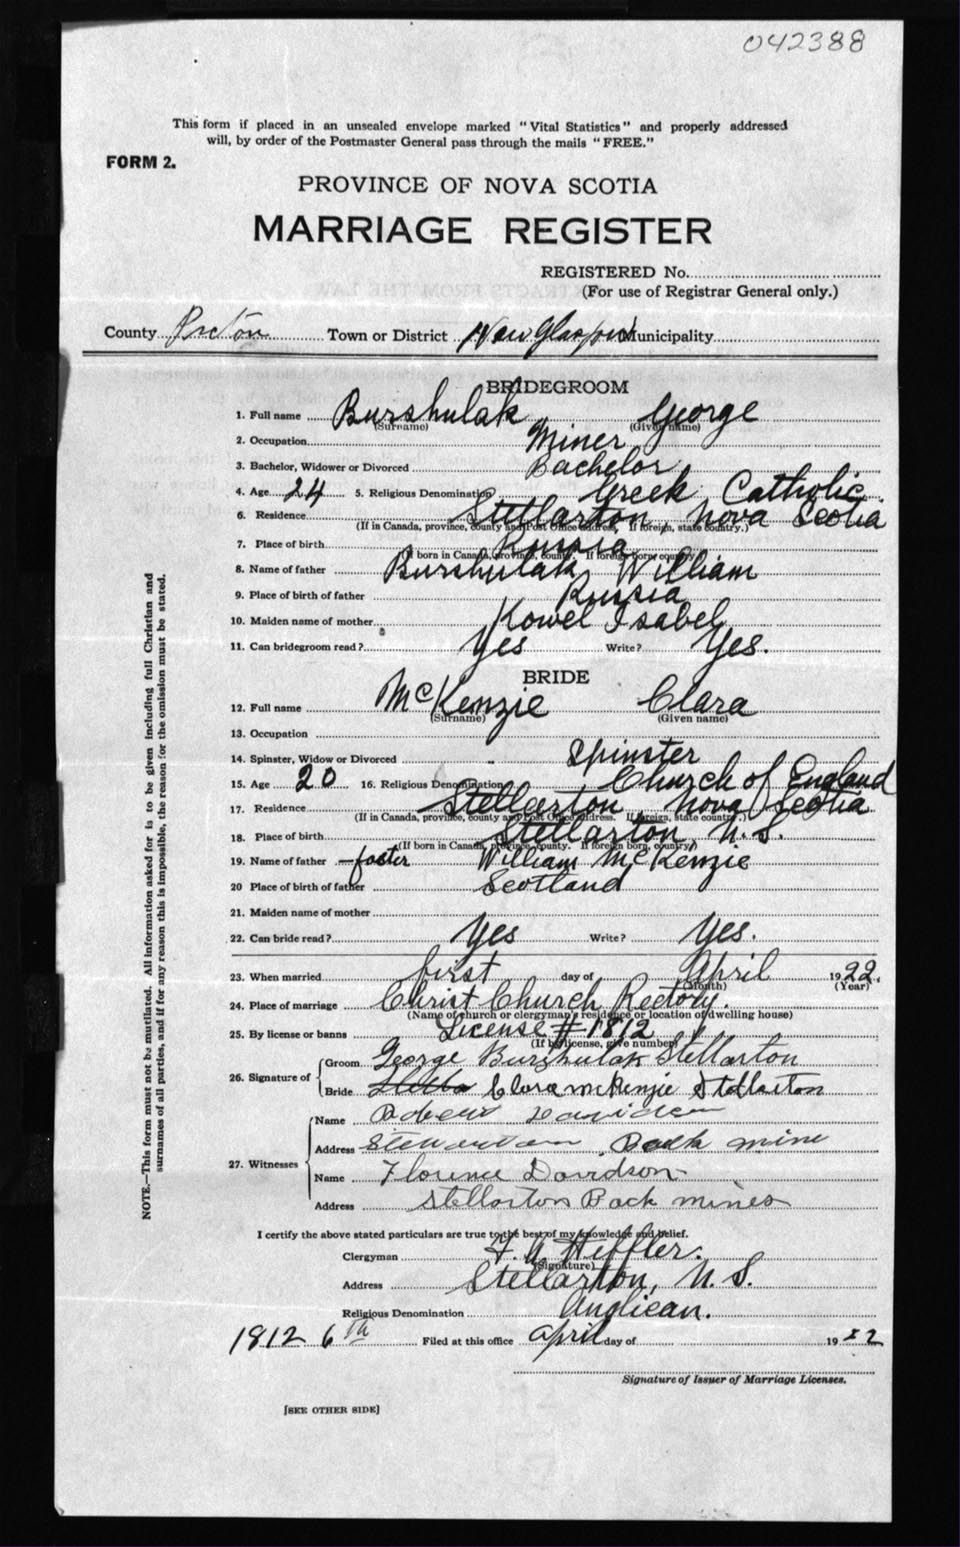 042388
This form if placed in an unsealed envelope marked "Vital Statistics" and properly addressed
will, by order of the Postmaster General pass through the mails "FREE."
FORM 2.
PROVINCE OF NOVA SCOTIA
MARRIAGE REGISTER
REGISTERED No.
(For use of Registrar General only.)
County Pictou Town or District New Glasgow Municipality
BRIDEGROOM
1. Full name Burshulak George
(Surname) (Given name)
2. Occupation Miner
3. Bachelor, Widower or Divorced Bachelor
4. Age 24 5. Religious Denomination Greek Catholic.
6. Residence Stellarton, Nova Scotia
(If in Canada, province, county and Post Office address. If foreign, state country.)
7. Place of birth Russia
(If born in Canada, province, county. If foreign born, country)
8. Name of father Burshulak William
9. Place of birth of father Russia
10. Maiden name of mother Kowel Isabel
11. Can bridegroom read? Yes Write? Yes.
BRIDE
12. Full name McKenzie Clara
(Surname) (Given name)
13. Occupation
14. Spinster, Widow or Divorced Spinster
15. Age 20 16. Religious Denomination Church of England
17. Residence Stellarton, Nova Scotia
(If in Canada, province, county and Post Office address. If foreign, state country.)
18. Place of birth Stellarton, N.S.
(If born in Canada, province, county. If foreign born, country)
19. Name of father - foster William McKenzie
20 Place of birth of father Scotland
21. Maiden name of mother
22. Can bride read? Yes Write? Yes.
23. When married first day of April 1922.
(Month) (Year)
24. Place of marriage Christ Church Rectory.
(Name of church or clergyman's residence or location of dwelling house)
25. By license or banns License #1812
(If by license, give number)
26. Signature of Groom George Burshulak Stellarton
Bride Clara McKenzie Stellarton
27. Witnesses
Name Robert Davidson
Address Stellarton Back mine
Name Florence Davidson
Address Stellarton Back mines
I certify the above stated particulars are true to the best of my knowledge and belief.
Clergyman F. A. Heffler.
(Signature)
Address Stellarton, N.S.
Religious Denomination Anglican.
1812 6th Filed at this office April day of 1922
Signature of Issuer of Marriage Licenses.
[SEE OTHER SIDE]
NOTE.—This form must not be mutilated. All information asked for is to be given including full Christian and
surnames of all parties, and if for any reason this is impossible, the reason for the omission must be stated.